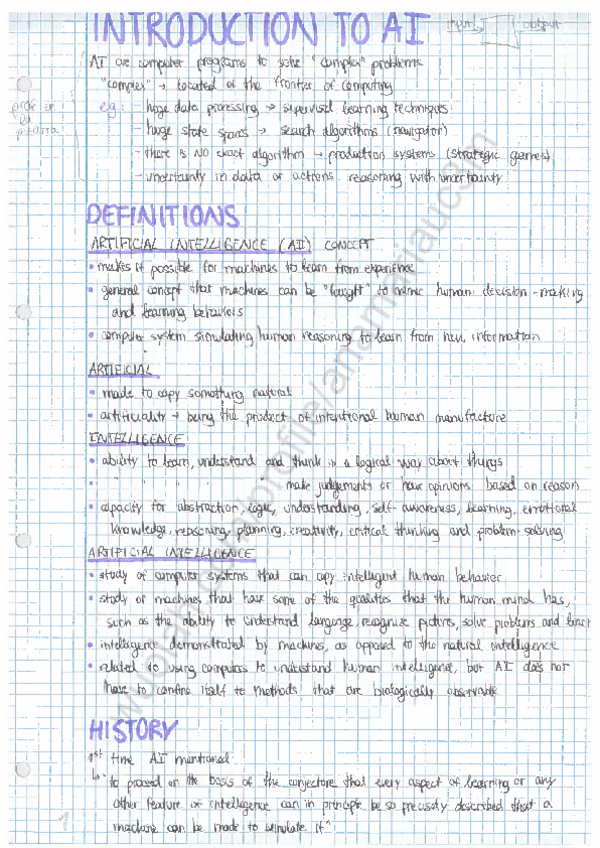 INTRODUCTION TO AI
input → output
AI are computer programs to solve "complex" problems
"complex" → located at the frontier of computing
eg: - huge data processing → supervised learning techniques
- huge state spaces → search algorithms (navigator)
- there is NO exact algorithm → production systems (strategic games)
- uncertainty in data or actions reasoning with uncertainty
DEFINITIONS
ARTIFICIAL INTELLIGENCE (AI) CONCEPT
• makes it possible for machines to learn from experience
• general concept that machines can be "taught" to mimic human decision-making
and learning behaviors
• computer system simulating human reasoning to learn from new information
ARTIFICIAL
• made to copy something natural
• artificiality → being the product of intentional human manufacture
INTELLIGENCE
• ability to learn, understand and think in a logical way about things
" " " " make judgements or have opinions based on reason
• capacity for abstraction, logic, understanding, self-awareness, learning, emotional
knowledge, reasoning, planning, creativity, critical thinking and problem-solving
ARTIFICIAL INTELLIGENCE
• study of computer systems that can copy intelligent human behavior
• study of machines that have some of the qualities that the human mind has,
such as the ability to understand language, recognize pictures, solve problems and learn
• intelligence demonstrated by machines, as opposed to the natural intelligence
• related to using computers to understand human intelligence, but AI does not
have to confine itself to methods that are biologically observable
HISTORY
1st time AI mentioned
↳ "to proceed on the basis of the conjecture that every aspect of learning or any
other feature of intelligence can in principle be so precisely described that a
machine can be made to simulate it"
1